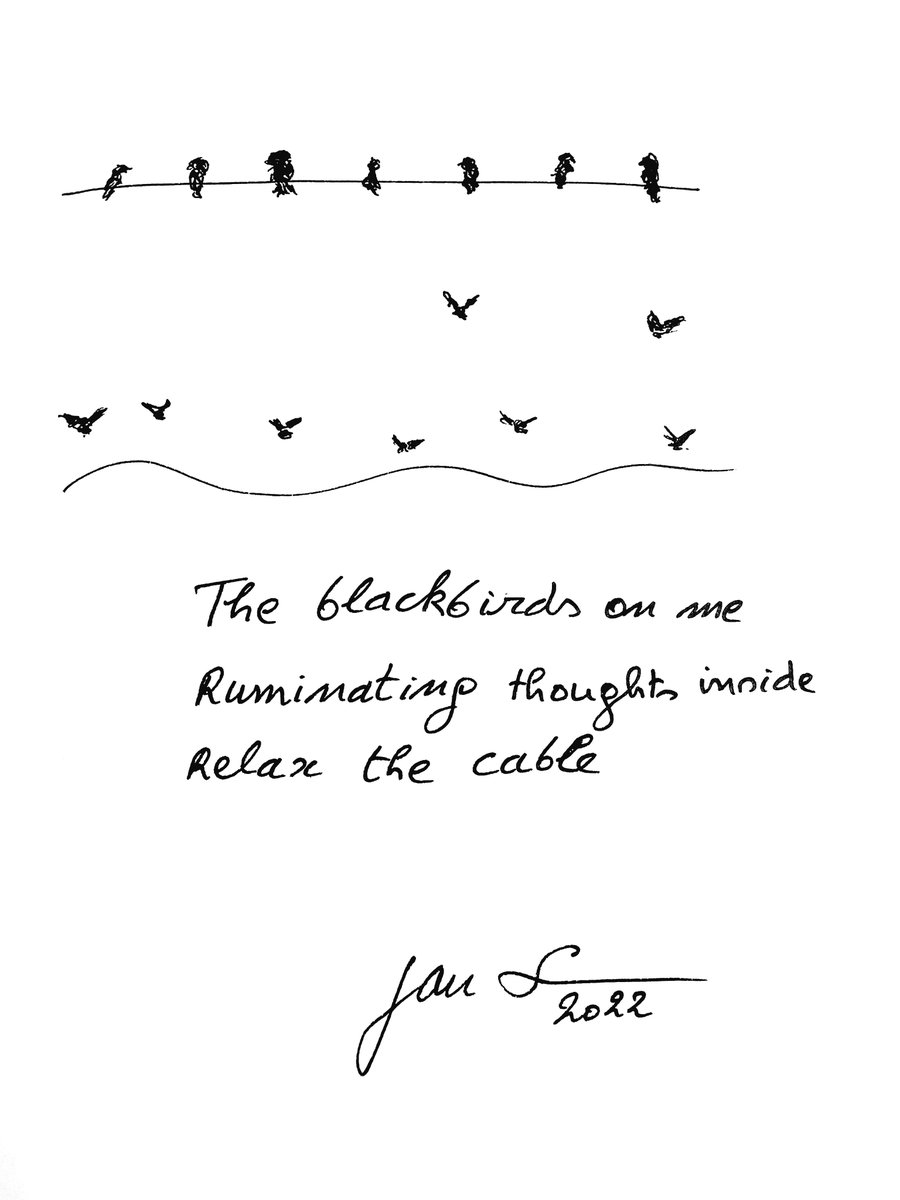 The blackbirds on me
Ruminating thoughts inside
Relax the cable
Jan S
2022